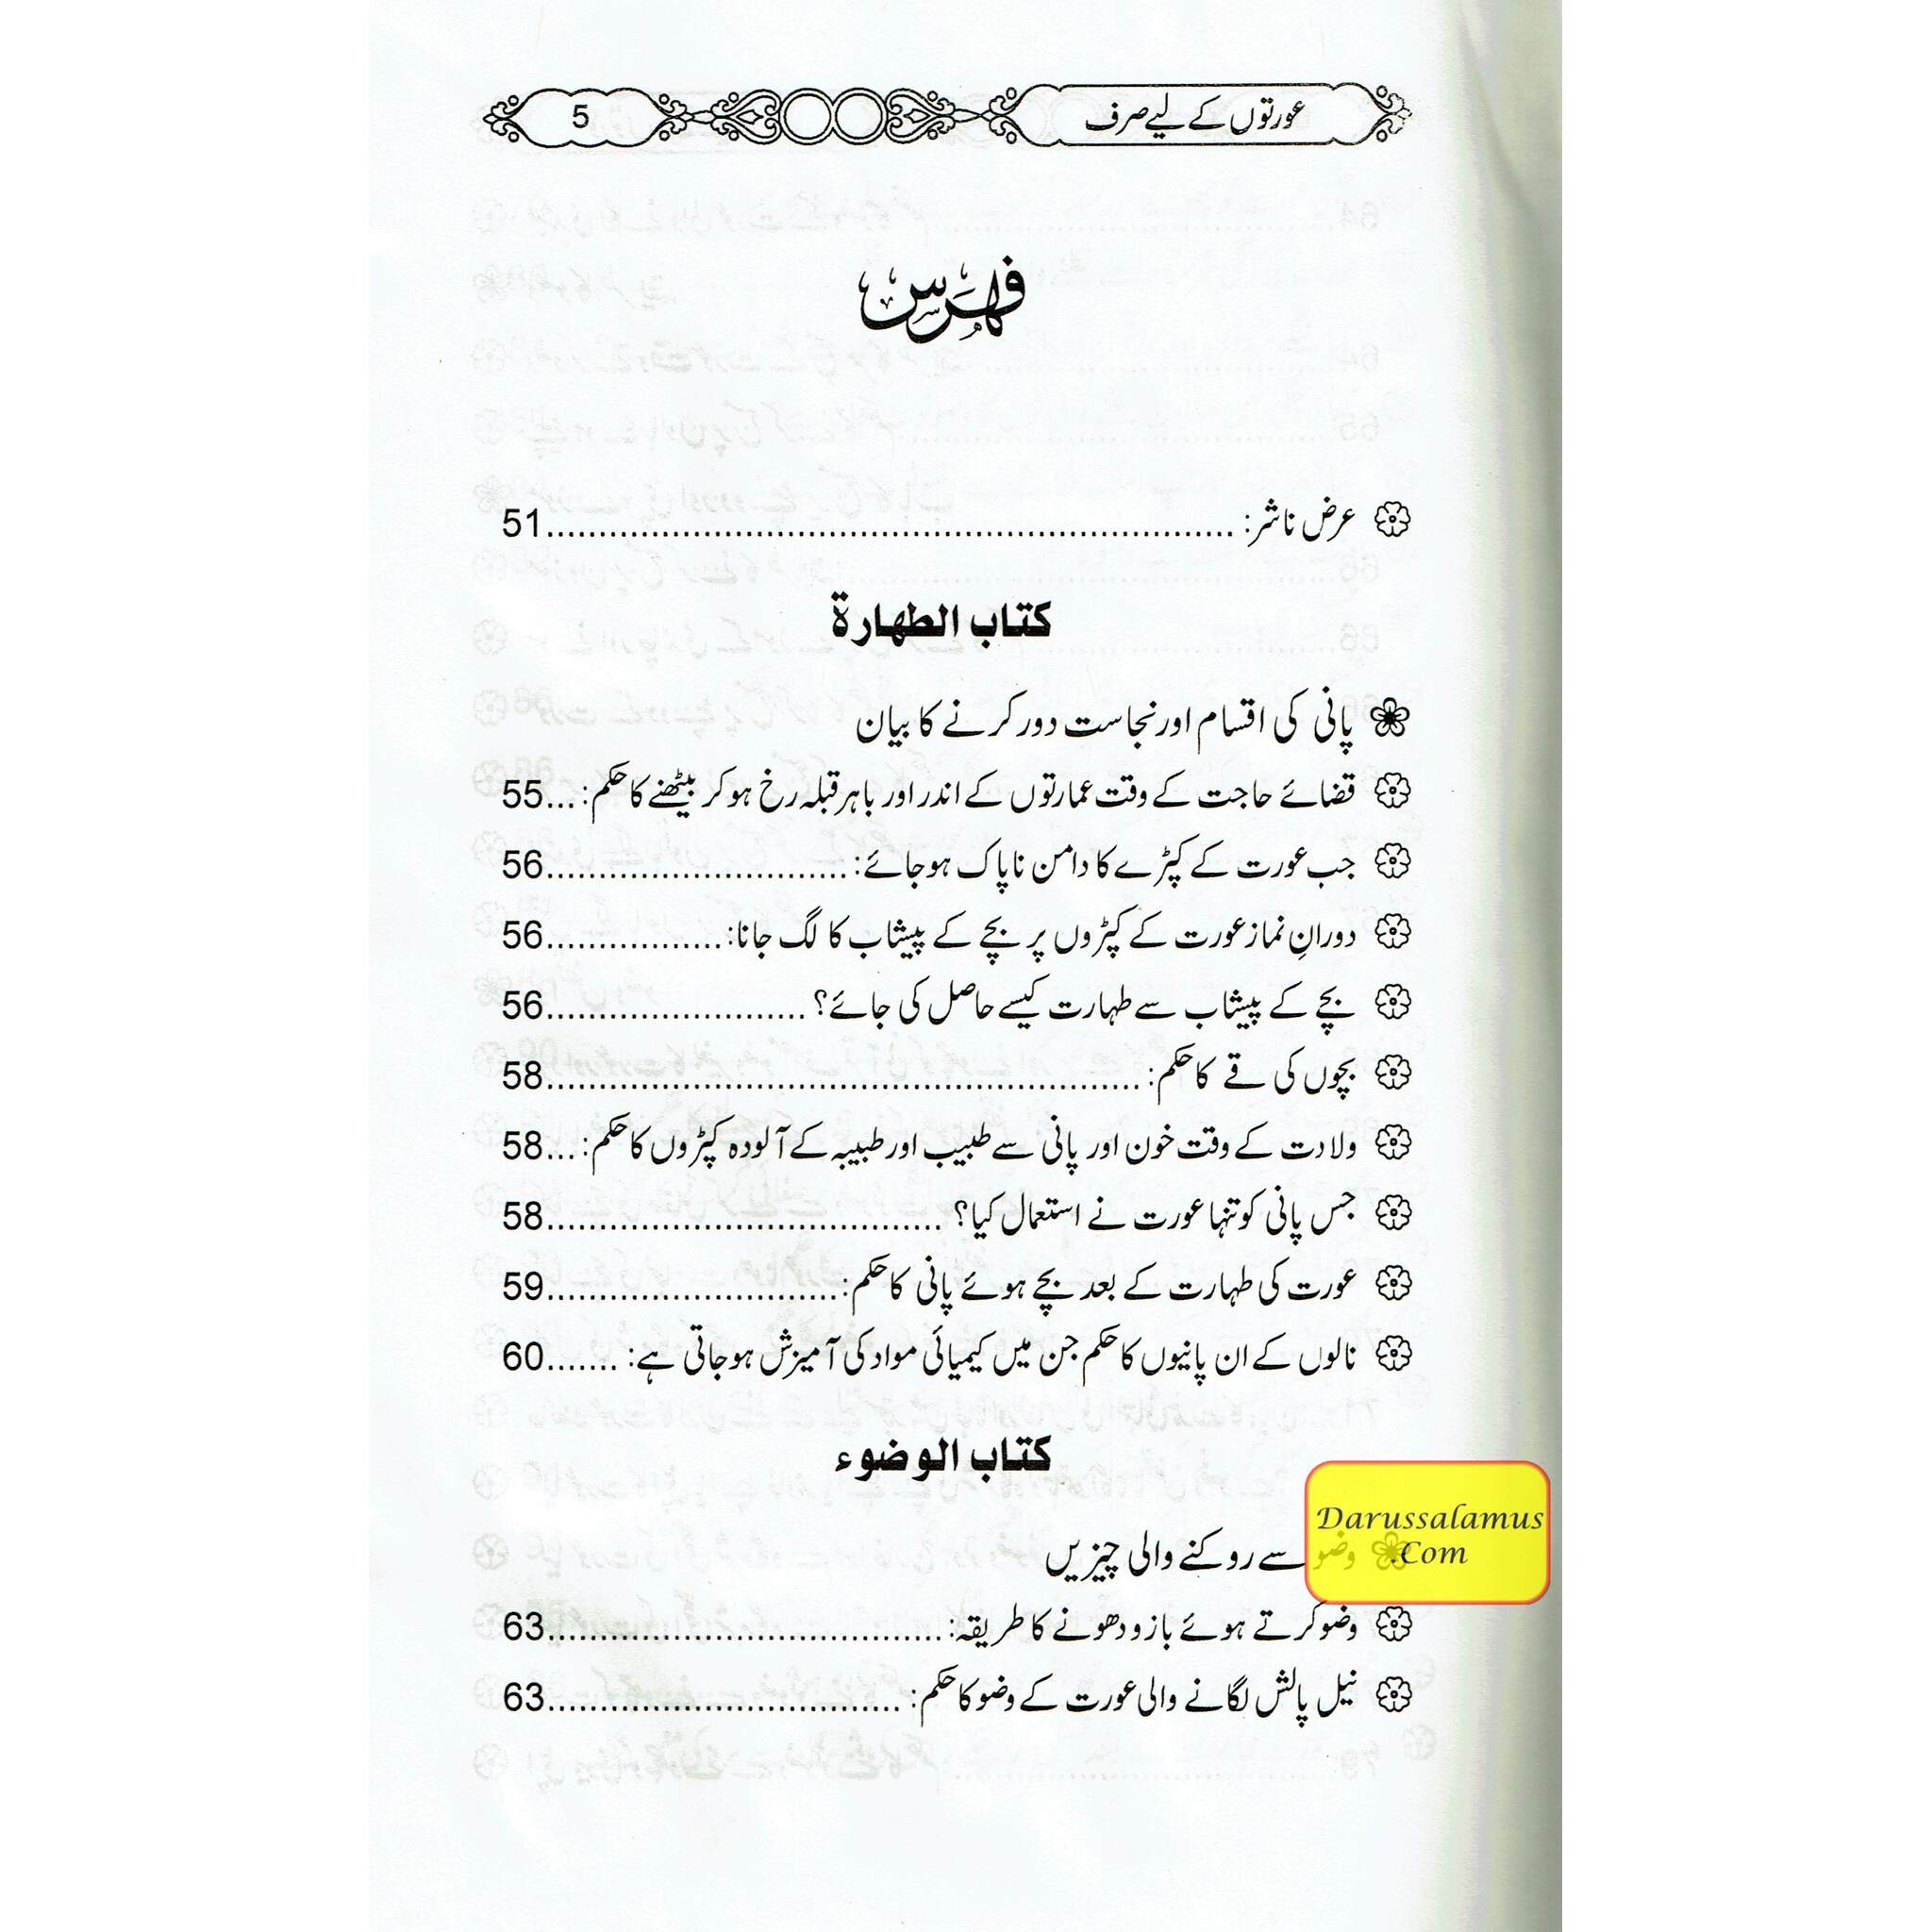 عورتوں کے لیے صرف 5
فہرس
عرض ناشر: 51
كتاب الطهارة
پانی کی اقسام اور نجاست دور کرنے کا بیان
قضائے حاجت کے وقت عمارتوں کے اندر اور باہر قبلہ رخ ہو کر بیٹھنے کا حکم: ... 55
جب عورت کے کپڑے کا دامن ناپاک ہو جائے: 56
دورانِ نماز عورت کے کپڑوں پر بچے کے پیشاب کا لگ جانا: 56
بچے کے پیشاب سے طہارت کیسے حاصل کی جائے؟ 56
بچوں کی قے کا حکم: 58
ولادت کے وقت خون اور پانی سے طبیب اور طبیبہ کے آلودہ کپڑوں کا حکم: ... 58
جس پانی کو تنہا عورت نے استعمال کیا؟ 58
عورت کی طہارت کے بعد بچے ہوئے پانی کا حکم: 59
نالوں کے ان پانیوں کا حکم جن میں کیمیائی مواد کی آمیزش ہو جاتی ہے: 60
كتاب الوضوء
وضو سے روکنے والی چیزیں
Darussalamus
.Com
وضو کرتے ہوئے بازو دھونے کا طریقہ: 63
نیل پالش لگانے والی عورت کے وضو کا حکم: 63